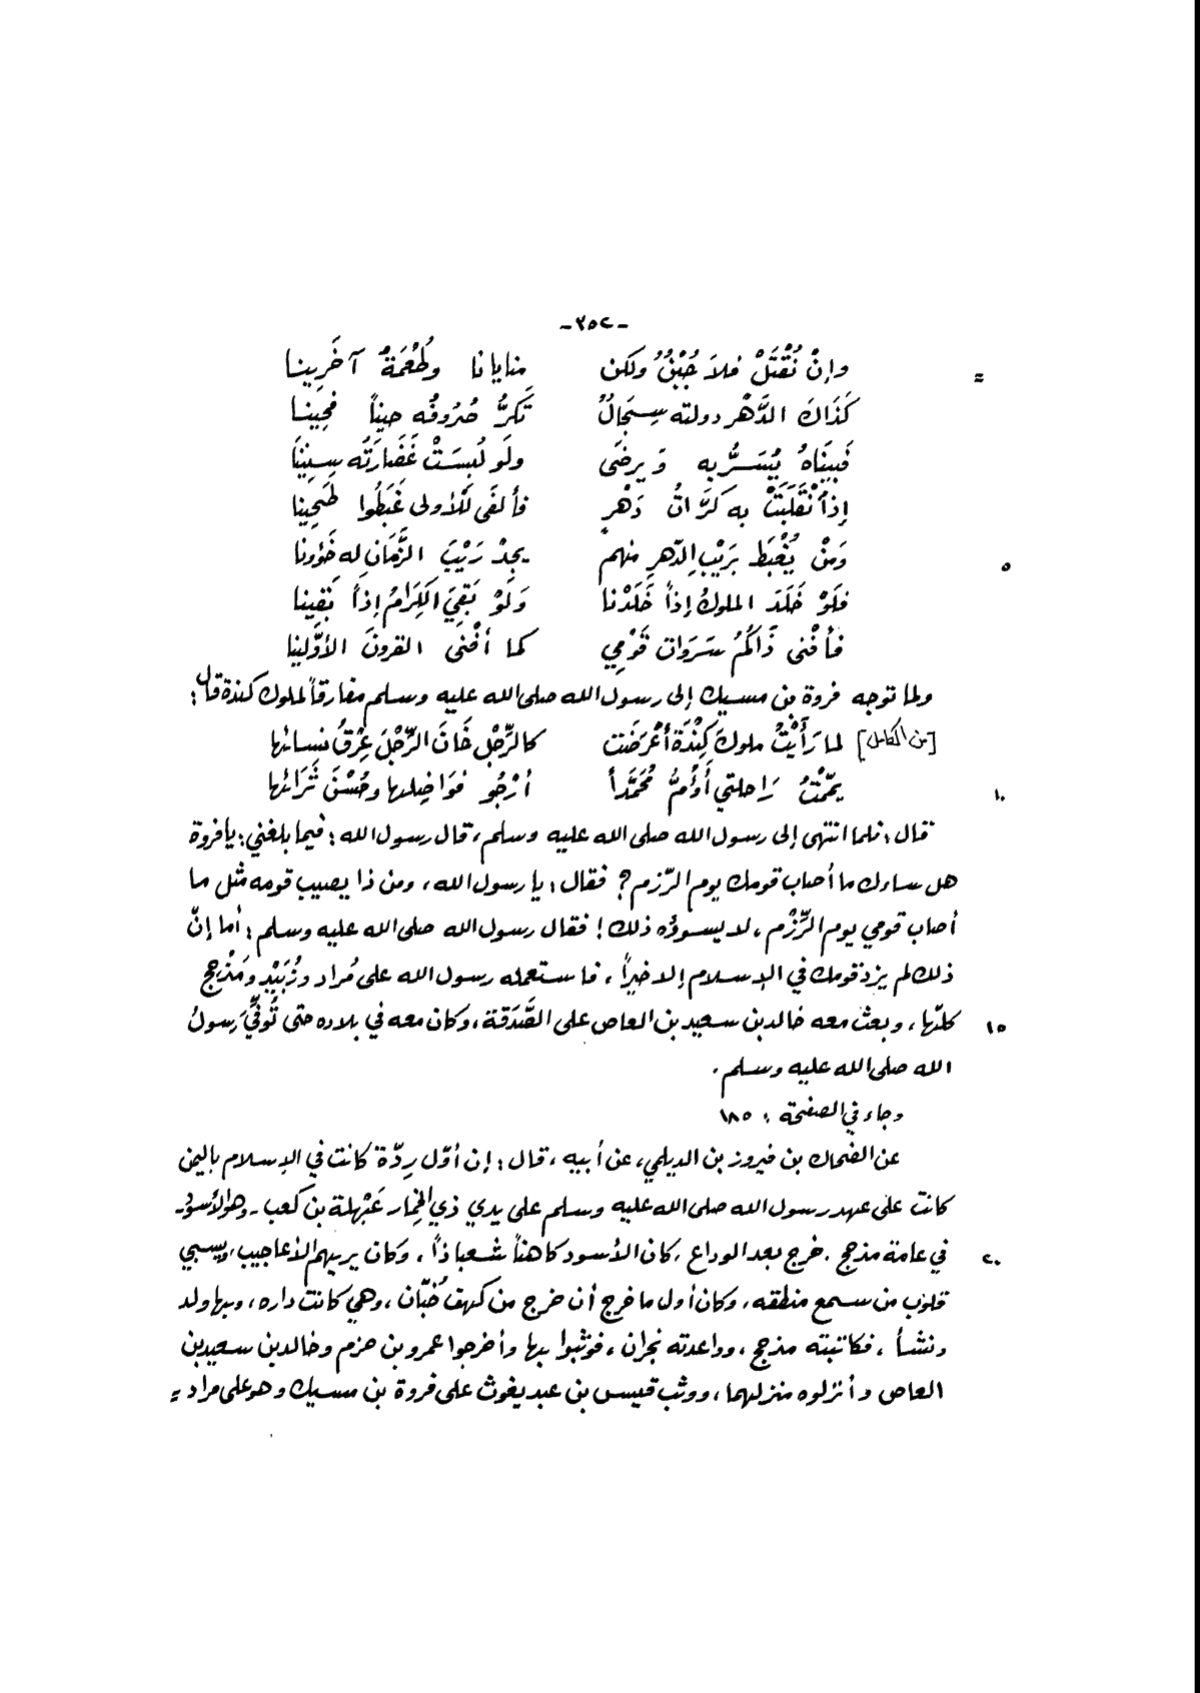 -٣٥٢-
= وإنْ نُقْتَلْ فلاَ جُبْنٌ ولكن منايانا وطُعْمَةُ آخَرِينا
كَذَاكَ الدَّهْر دولته سِجَالٌ تَكرُّ صُرُوفُه حيناً فحِينا
فَبينَاهُ يُسَرُّ به وَيرضَى ولَو لُبِسَتْ غَضَارَتُه سِنِينَا
إذاْ نْقَلَبَتْ به كرَّاتُ دَهْرٍ فألفَى لِلْأولى غَبَطُوا طَحِينا
٥ وَمَنْ يُغْبَط بَريْبِ الدّهرِ منهم يجِدْ رَيْبَ الزَّمَانِ له خَؤونا
فلَوْ خَلَدَ الملوكُ إذاً خَلَدْنا وَلَوْ بَقِيَ الكِرَامُ إذاً بَقينا
فأفْنى ذَاكُمُ سَرَوات قَوْمِي كما أفْنى القرونَ الأوَّلينا
ولما توجه فروة بن مسيك إلى رسول الله صلى الله عليه وسلم مفارقاً لملوك كندة قال:
[من الكامل] لما رَأَيْتُ ملوكَ كِنْدَة أعْرَضَت كالرِّجْلِ خَانَ الرِّجْلَ عِرْقُ نسائها
١٠ يمّمْتُ رَاحلتي أَؤُمُّ مُحَمَّداً أرْجُو فوَاضِلها وحُسْنَ ثَرَائها
قال: فلما انتهى إلى رسول الله صلى الله عليه وسلم، قال رسول الله: فيما بلغني: يا فروة
هل ساءك ما أصاب قومك يوم الرّزم؟ فقال: يا رسول الله، ومن ذا يصيب قومه مثل ما
أصاب قومي يوم الرِّزْم، لا يسوؤه ذلك! فقال رسول الله صلى الله عليه وسلم: أما إنّ
ذلك لم يزد قومك في الإسلام إلا خيراً، فاستعمله رسول الله على مُراد وزُبَيْدٍ ومَذْحِج
١٥ كلّها، وبعث معه خالد بن سعيد بن العاص على الصَّدَقة، وكان معه في بلاده حتى تُوفِّيَ رسولُ
الله صلى الله عليه وسلم.
وجاء في الصفحة: ١٨٥
عن الضحاك بن فيروز بن الديلمي، عن أبيه، قال: إن أوّل رِدّة كانت في الإسلام باليمن
كانت على عهد رسول الله صلى الله عليه وسلم على يدي ذي الخِمار عَبْهلة بن كعب - وهو الأسود -
٢٠ في عامة مذحج. خرج بعد الوداع، كان الأسود كاهناً شعباذاً، وكان يريهم الأعاجيب، ويسبي
قلوب من سمع منطقه، وكان أول ما خرج أن خرج من كهف خُبّان، وهي كانت داره، وبها ولد
ونشأ، فكاتبته مذحج، وواعدته نجران، فوثبوا بها وأخرجوا عمرو بن حزم وخالد بن سعيد بن
العاص وأنزلوه منزلهما، ووثب قيس بن عبد يغوث على فروة بن مسيك وهو على مراد =